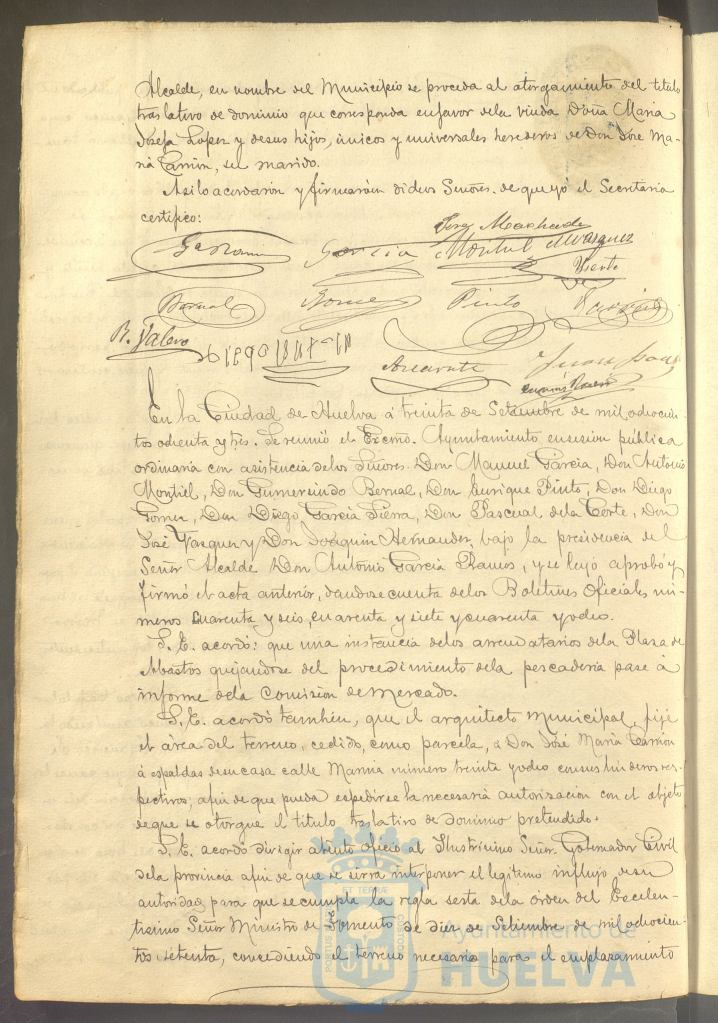 Alcalde, en nombre del Municipio se proceda al otorgamiento del titulo
traslativo de dominio que corresponda enfavor dela viuda Doña Maria
Josefa Lopez y desus hijos, únicos y universales herederos de Don José Ma-
ria Carrion, su marido.
Asi lo acordarón y firmarón dichos Señores. de que yó el Secretario
certifico:
Jose Machado
Garcia Montiel MVazquez
Bernal Gomez Pinto
R. Valero
En la Ciudad de Huelva á treinta de Setiembre de mil ochocien-
tos ochenta y tres. Se reunió el Excmo. Ayuntamiento en sesion pública
ordinaria con asistencia delos Señores. Don Manuel Garcia, Don Antonio
Montiel, Don Gumersindo Bernal, Don Enrique Pinto, Don Diego
Gomez, Don Diego Garcia Sierra, Don Pascual dela Corte, Don
José Vasquez y Don Joaquin Hernandez, bajo la presidencia del
Señor Alcalde Don Antonio Garcia Ramos, y se leyó aprobó y
firmó el acta anteriór, dandose cuenta delos Boletines Oficiales nú-
meros cuarenta y seis, cuarenta y siete y cuarenta y ocho.
S. E. acordó: que una instancia delos arrendatarios dela Plaza de
Abastos quejandose del procedimiento dela pescaderia pase á
informe dela Comision de Mercado.
S. E. acordó tambien, que el arquitecto Municipal, fije
el área del terreno, cedido, como parcela, a Don José Maria Carrion
á espaldas desu casa calle Marina número treinta y ocho consus linderos res-
pectivos; afin de que pueda espedirse la necesaria autorizacion con el objeto
de que se otorgue el titulo traslativo de dominio pretendido.
S. E. acordó dirigir atento oficio al Ilustrisimo Señor Gobernador Civil
dela provincia afin de que se sirva interponer el legitimo influjo desu
autoridad para que se cumpla la regla sesta dela órden del Escelen-
tisimo Señor Ministro de Fomento de diez de Setiembre de mil ochocien-
tos setenta, concediendo el terreno necesario para el emplazamiento
Ayuntamiento de
HUELVA